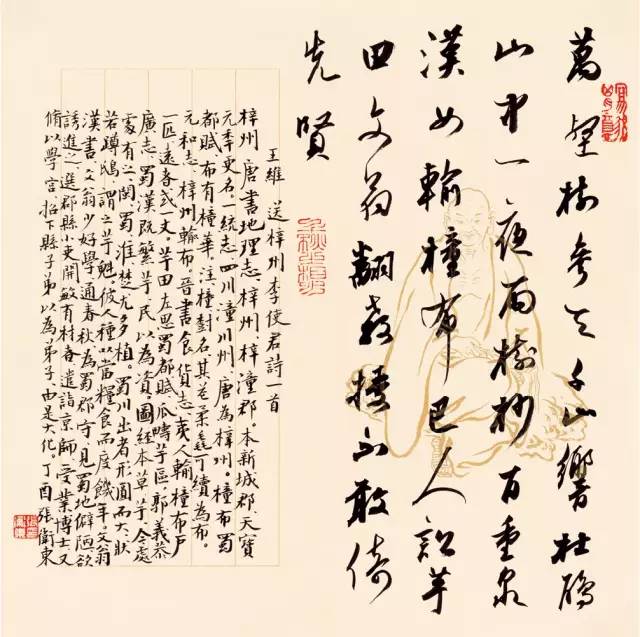 萬壑樹參天千山響杜鵑
山中一夜雨樹杪百重泉
漢女輸橦布巴人訟芋
田文翁翻教授不敢倚
先賢
王維 送梓州李使君詩一首
梓州。唐書地理志，梓州梓潼郡。本新城郡，天寶
元季更名。一統志，四川潼川州，唐為梓州。橦布蜀
都賦，布有橦華，注橦樹名，其花柔毳可績為布。
元和志，梓州輸布。晉書食貨志，夷人輸橦布戶
一匹，遠者或一丈。芋田左思蜀都賦瓜疇芋區。郭義恭
廣志，蜀漢既繁芋，民以為資。圖經本草，芋，今處
處有之，閩蜀淮楚尤多植。蜀川出者形圓而大，狀
若蹲鴟，謂之芋魁。彼人種以當糧食而度饑年。文翁
漢書，文翁少好學，通春秋，為蜀郡守，見蜀地僻陋，欲
誘進之，選郡縣小吏開敏有材者遣詣京師，受業博士，又
脩以學官，招下縣子弟以為弟子，由是大化。丁酉張衛東